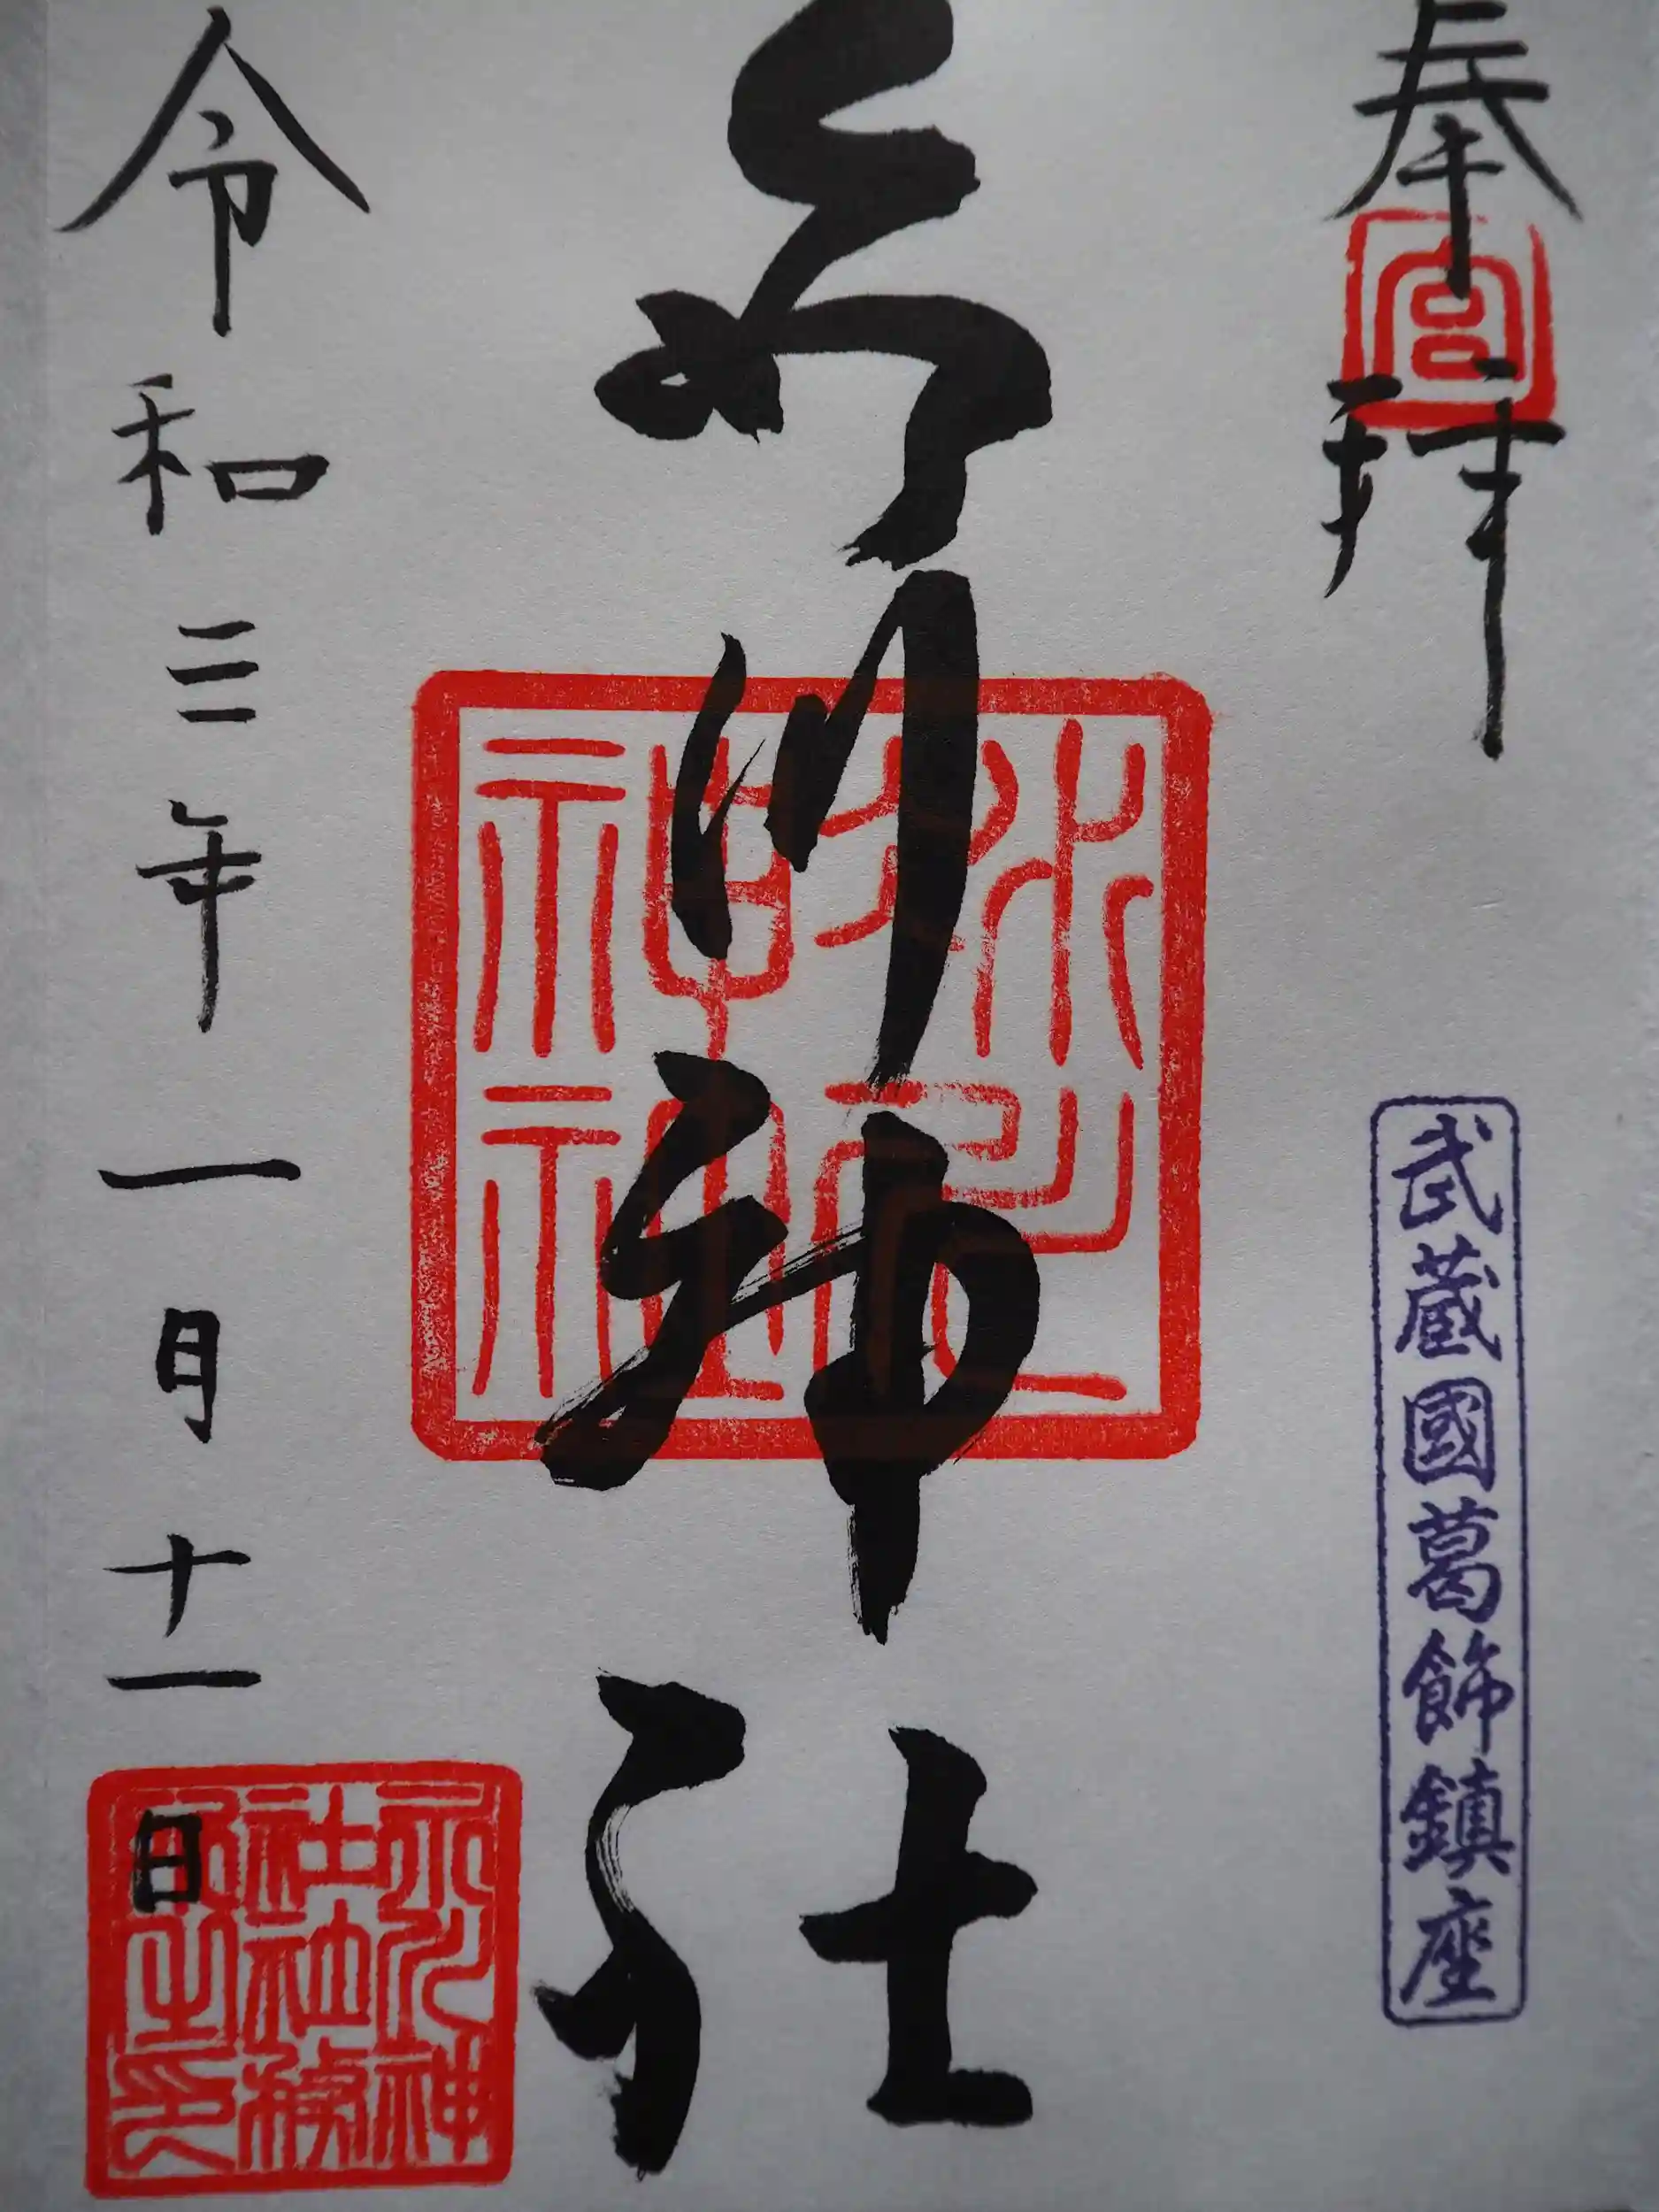 奉拝
宮
武蔵國葛飾鎮座
氷川神社
令和三年一月十一日
氷川神
社社務
所之印